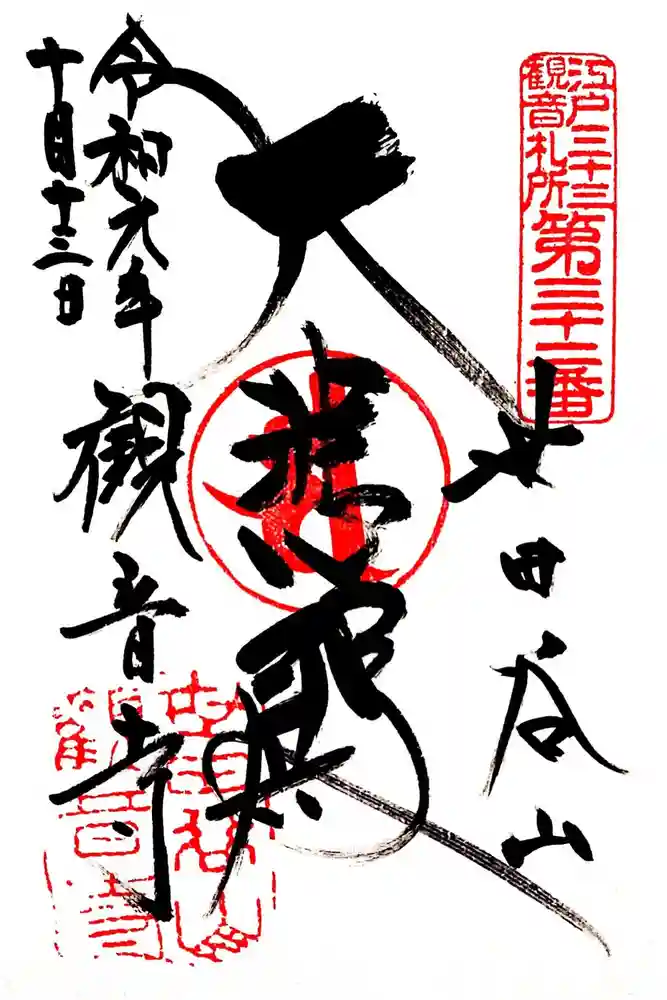 江戸三十三
観音札所
第三十二番
世田谷山
大悲殿
令和元年
十月十三日
観音寺